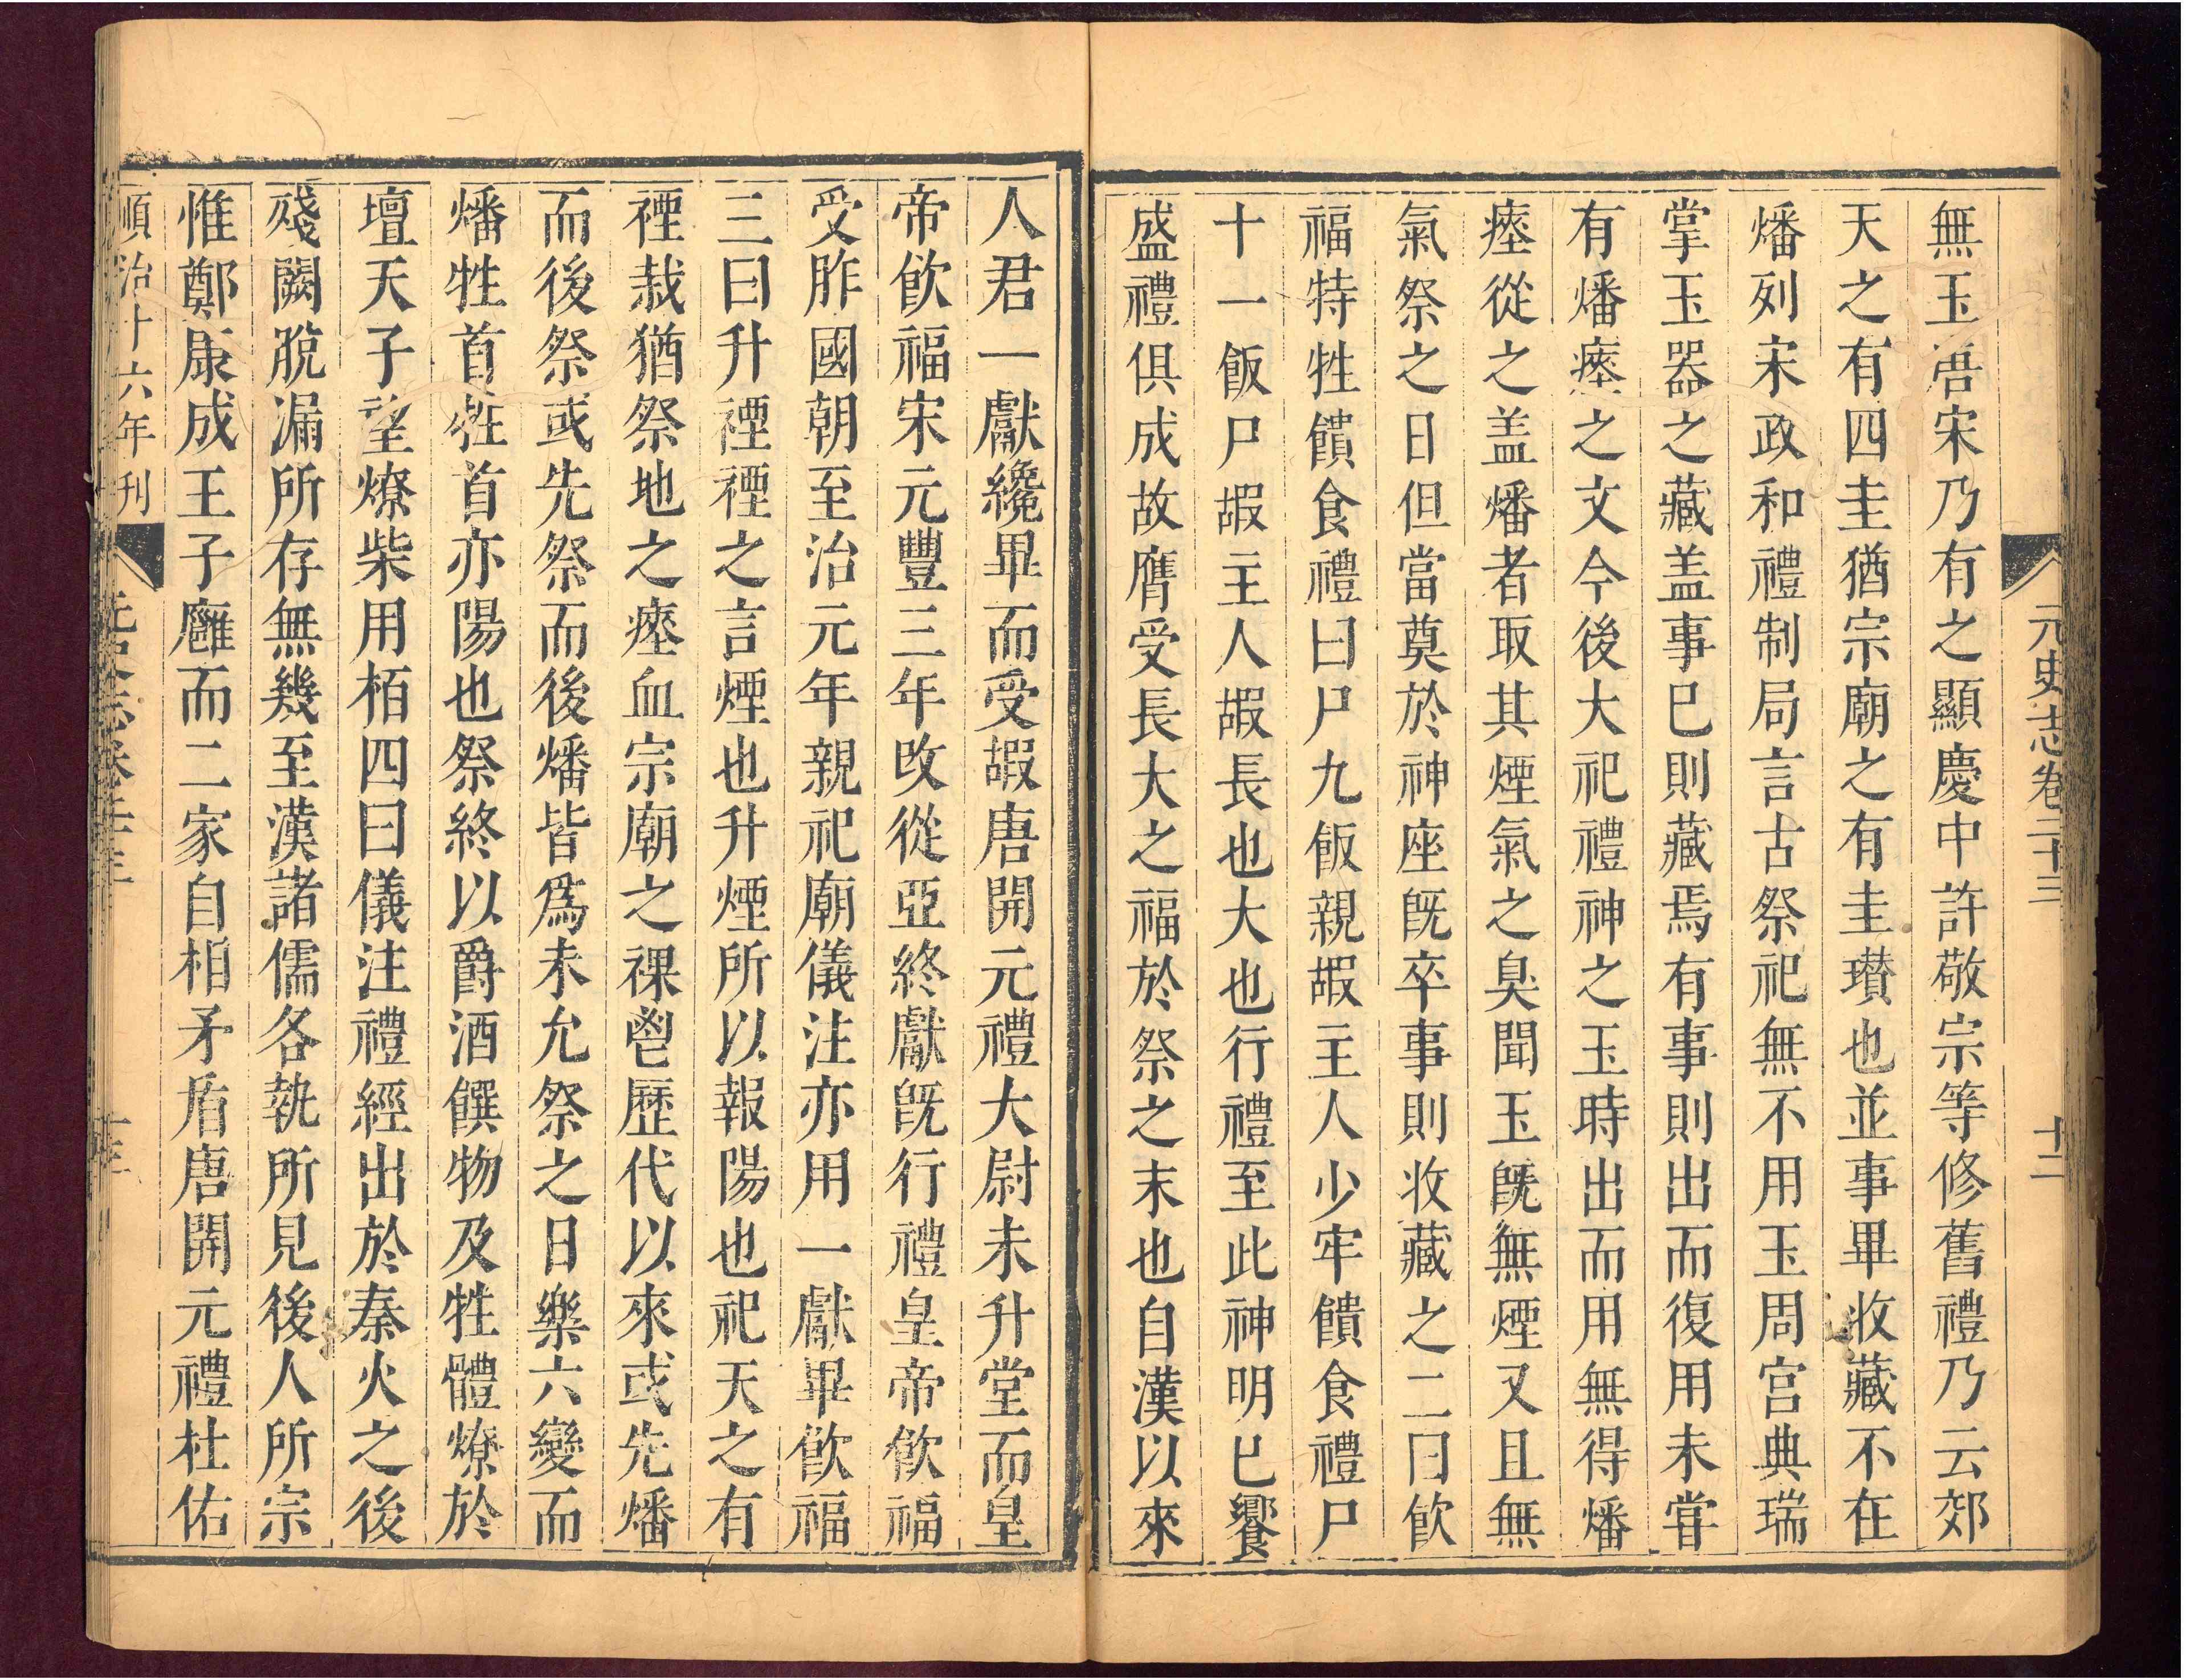 元史志卷二十三 十二
無玉吾宋乃有之顯慶中許敬宗等修舊禮乃云郊
天之有四圭猶宗廟之有圭瓚也並事畢收藏不在
燔列宋政和禮制局言古祭祀無不用玉周官典瑞
掌玉器之藏盖事已則藏焉有事則出而復用未甞
有燔瘞之文今後大祀禮神之玉時出而用無得燔
瘞從之盖燔者取其煙氣之臭聞玉旣無煙又且無
氣祭之日但當奠於神座旣卒事則收藏之二曰飲
福特牲饋食禮曰尸九飯親嘏主人少牢饋食禮尸
十一飯尸嘏主人嘏長也大也行禮至此神明已饗
盛禮俱成故膺受長大之福於祭之末也自漢以來
人君一獻纔畢而受嘏唐開元禮大尉未升堂而皇
帝飲福宋元豐三年改從亞終獻旣行禮皇帝飲福
受胙國朝至治元年親祀廟儀注亦用一獻畢飲福
三曰升禋禋之言煙也升煙所以報陽也祀天之有
禋栽猶祭地之瘞血宗廟之祼鬯歷代以來或先燔
而後祭或先祭而後燔皆爲未允祭之日樂六變而
燔牲首牲首亦陽也祭終以爵酒饌物及牲體燎於
壇天子望燎柴用栢四曰儀注禮經出於秦火之後
殘闕脫漏所存無幾至漢諸儒各執所見後人所宗
惟鄭康成王子雝而二家自相矛盾唐開元禮杜佑
順治十六年刊